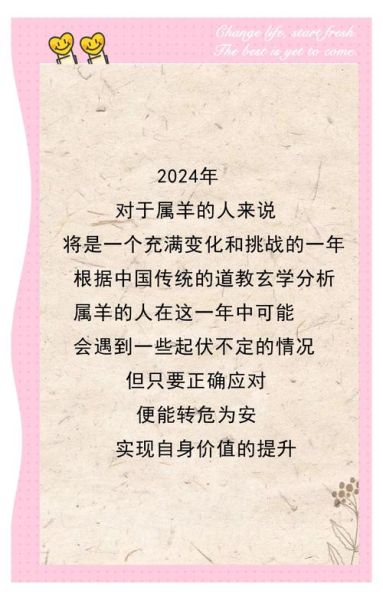 Change life, start fresh
The best is yet to come.
2024年
对于属羊的人来说
将是一个充满变化和挑战的一年
根据中国传统的道教玄学分析
属羊的人在这一年中可能
会遇到一些起伏不定的情况
但只要正确应对
便能转危为安
实现自身价值的提升